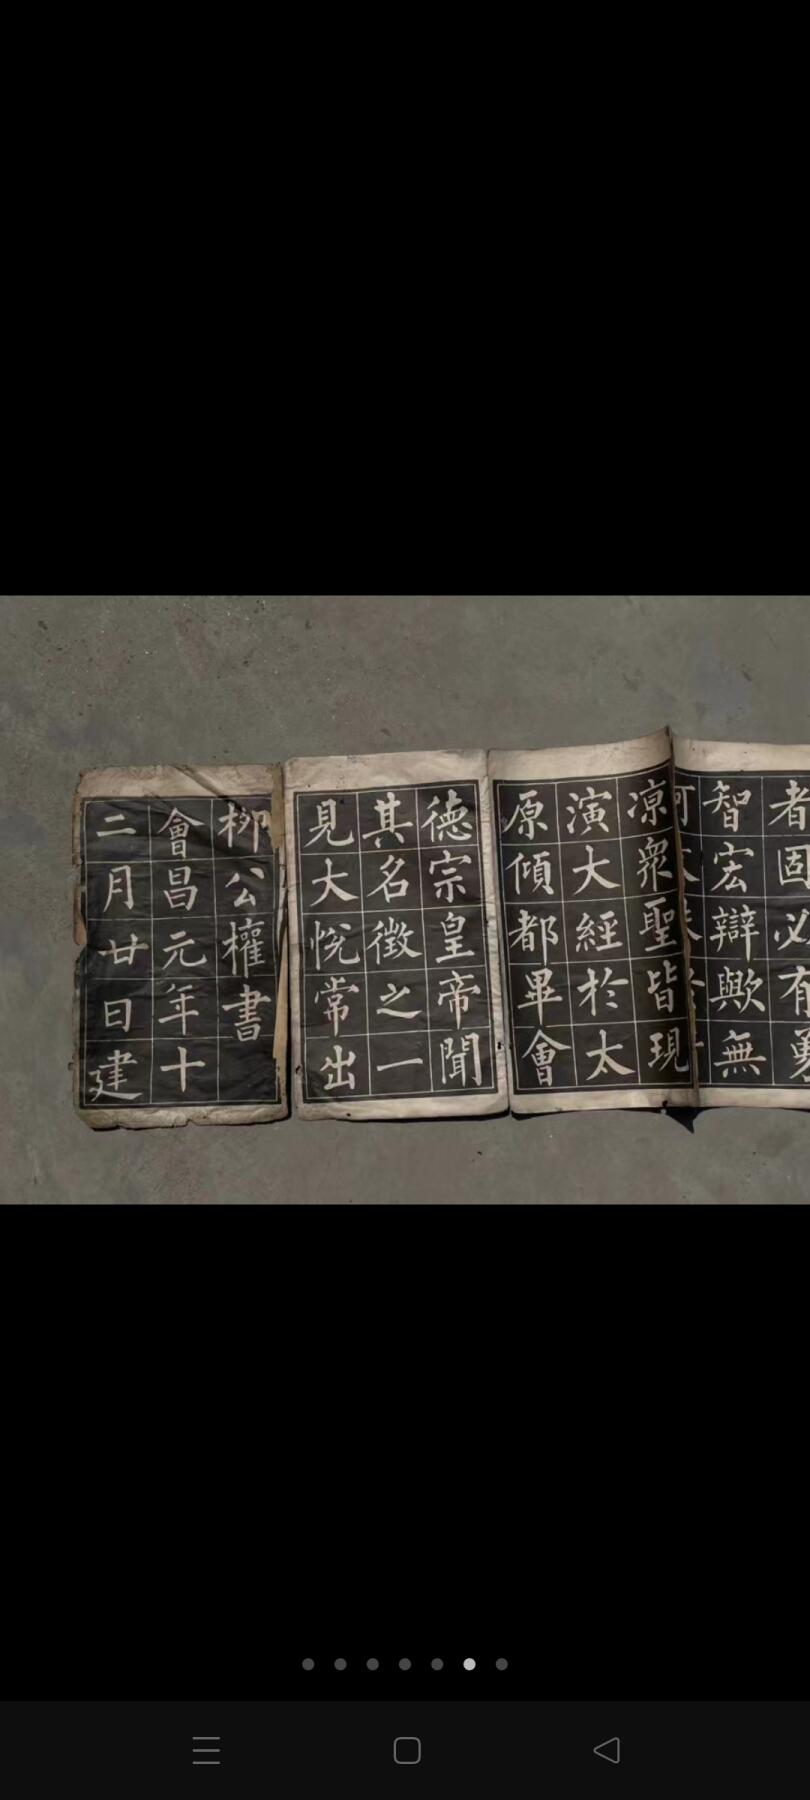 者固必有勇
智宏辯歟無
凉衆聖皆現
演大經於太
原傾都畢會
德宗皇帝聞
其名徵之一
見大悅常出
柳公權書
會昌元年十
二月廿日建